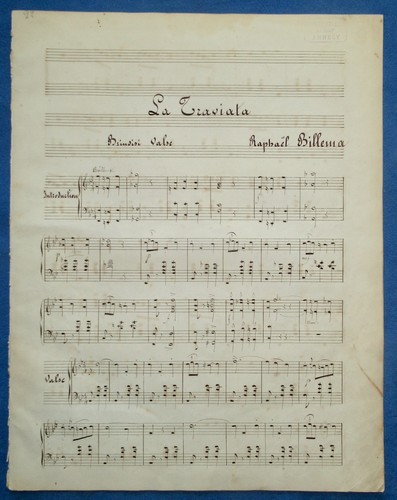 La Traviata
Brindisi Valse Raphaël Billema
Introduction
Valse